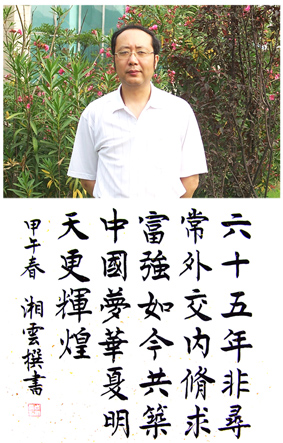 六十五年非尋
常外交内脩求
富強如今共築
中國夢華夏明
天更輝煌
甲午春 湘雲撰書